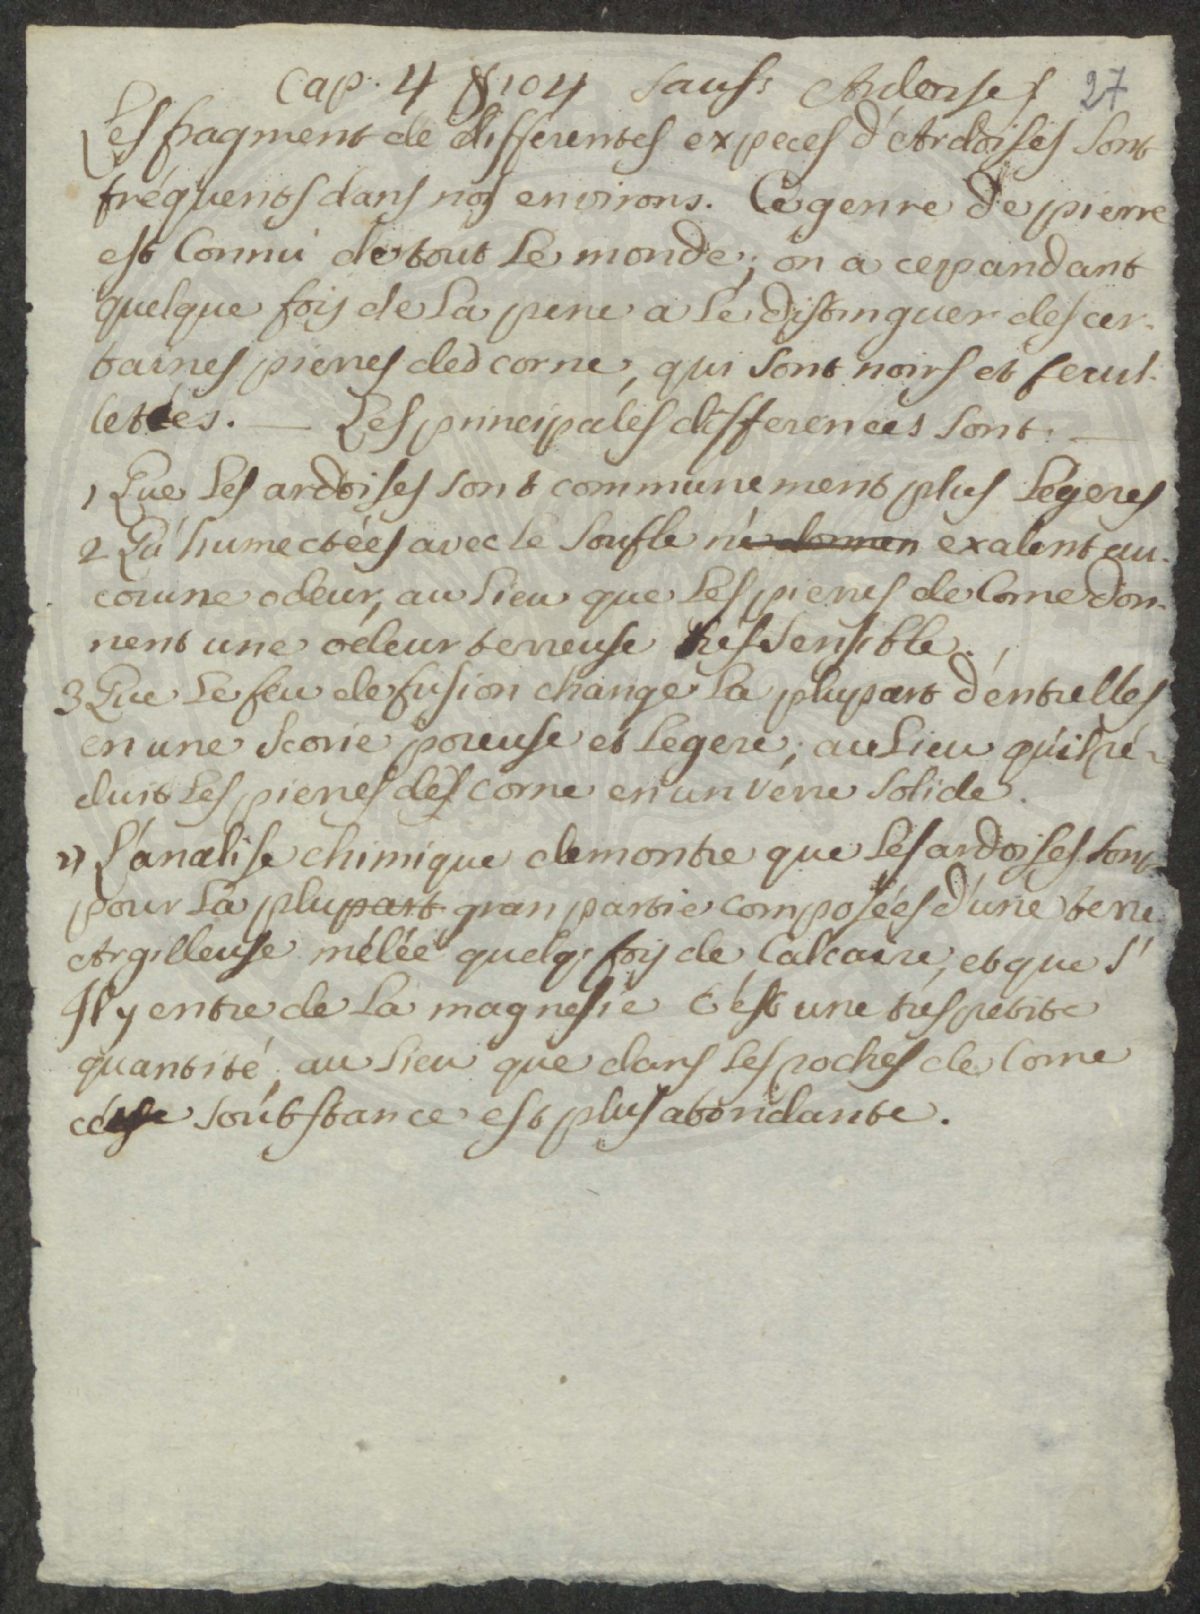 Cap. 4 § 104 Sauss Ardoises 27
Les fragment de differentes expeces d'Ardoises sont
fréquents dans nos environs. Ce genre de pierre
est Connu de tout Le monde; on a cepandant
quelque fois de La pene a Le distinguer des cer-
taines pierres de corne, qui sont noirs et feuil-
letées. — Les principales differences sont. —
1 Que Les ardoises sont communement plus Légeres
2 Qu'humectées avec le soufle ne donnen exalent au-
coune odeur, au Lieu que Les pierres de Corne don-
nent une odeur terreuse tres sensible.
3 Que Le feu de fusion change La plupart d'entrelles
en une Scorie poreuse et Legere; au Lieu qu'il ré-
duit Les pieres des corne en un verre solide.
4) L'analise chimique demontre que Les ardoises sont
pour La plupart gran partie composées d'une terre
Argilleuse mélée quelq: fois de Calcaire, et que s'
Il y entre de La magnesie c'est une trés petite
quantité, au Lieu que dans Les roches de Corne
cette soubstance est plus abondante.